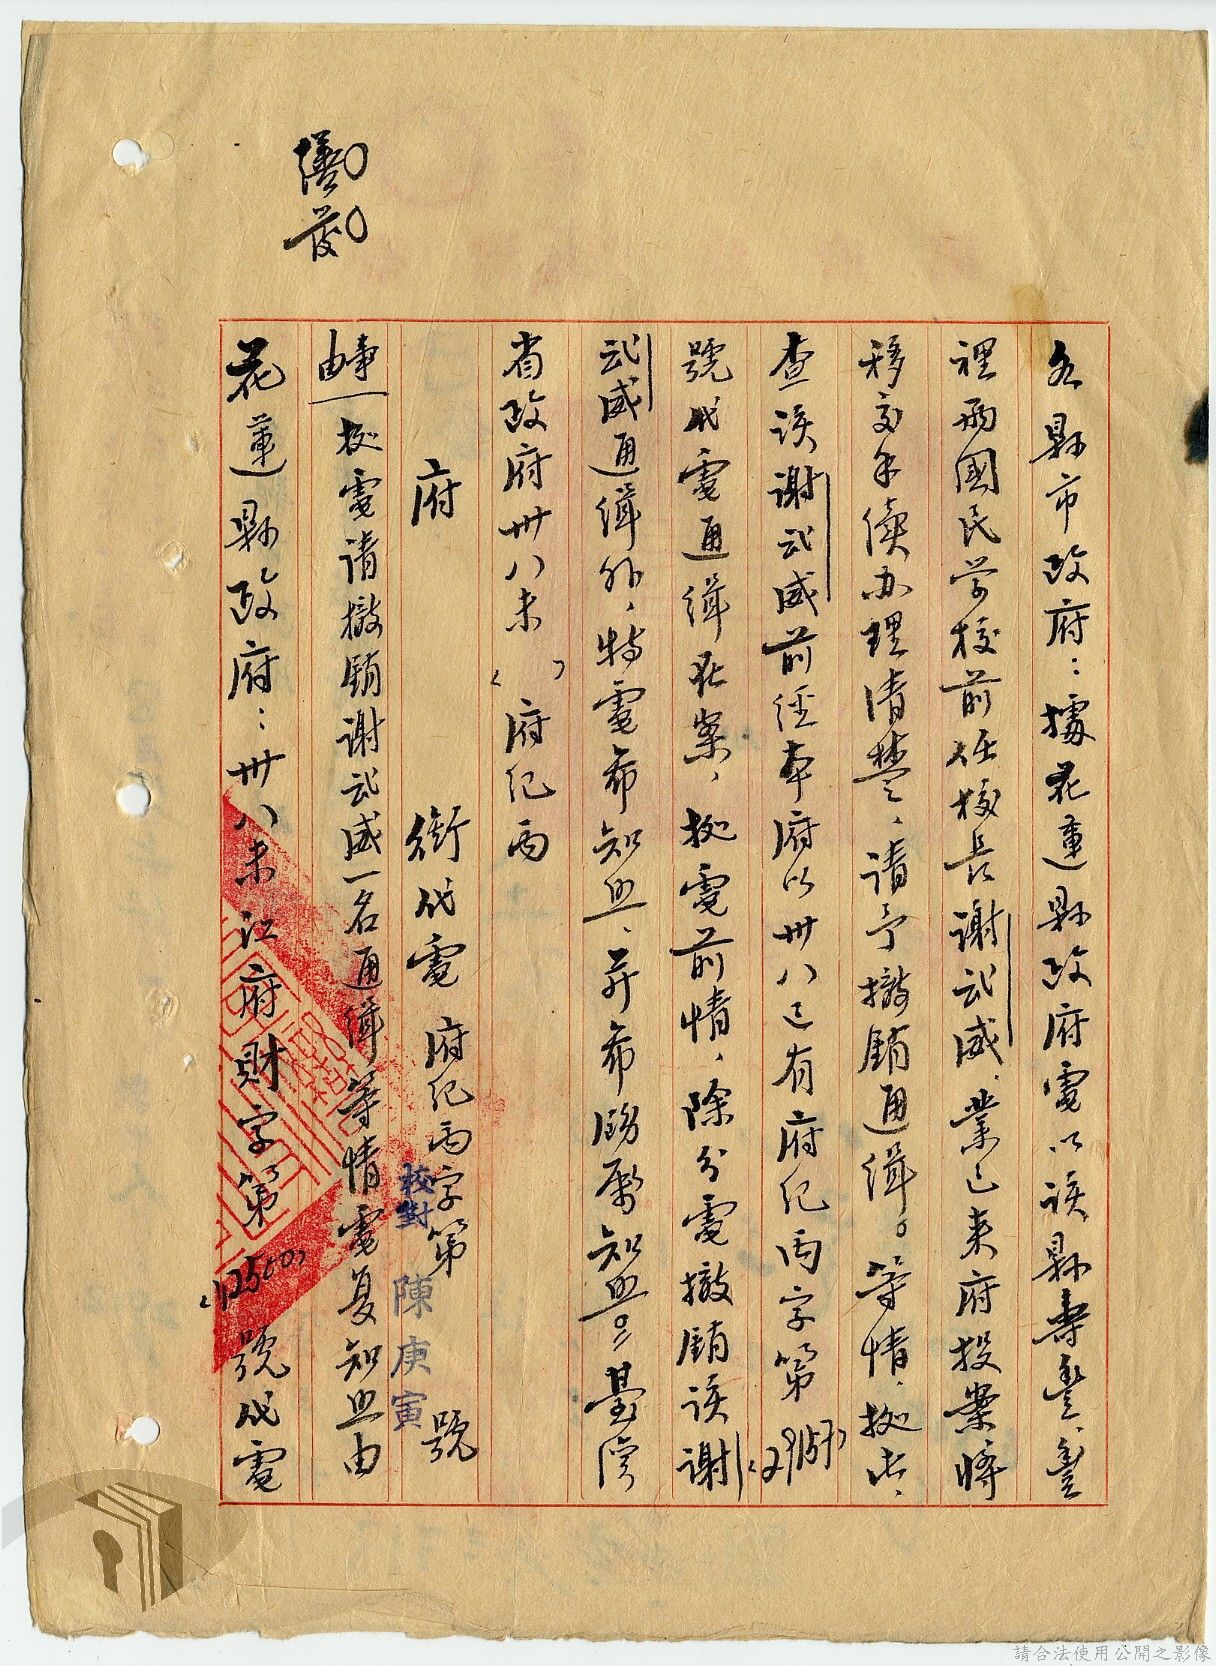 各縣市政府：據花蓮縣政府電以該縣壽豐、豐
裡兩國民学校前任校長謝武威、業已来府投案將
移交手續办理清楚、請予撤銷通緝。等情、拠此、
查該謝武威前經本府以卅八巳有府紀丙字第
號代電通緝在案、拠電前情、除分電撤銷該謝
武威通緝外、特電希知照、并希飭屬知照。臺灣
省政府卅八未（ ）府紀丙
府 銜代電 府紀丙字第 號
事由 拠電請撤銷謝武威一名通緝等情電复知照由
花蓮縣政府：卅八未江府財字第 號代電
校對 陳庚寅
請合法使用公開之影像